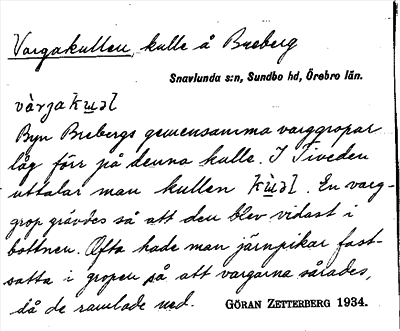 Vargakullen, kulle å Breberg
Snavlunda s:n, Sundbo hd, Örebro län.
vàrgakʉ̀əl
Byn Brebergs gemensamma varggropar
låg förr på denna kulle. I Tiveden
uttalar man kullen kʉ̀əl. En varg-
grop grävdes så att den blev vidast i
bottnen. Ofta hade man järnpikar fast-
satta i gropen så att vargarna sårades,
då de ramlade ned. GÖRAN ZETTERBERG 1934.